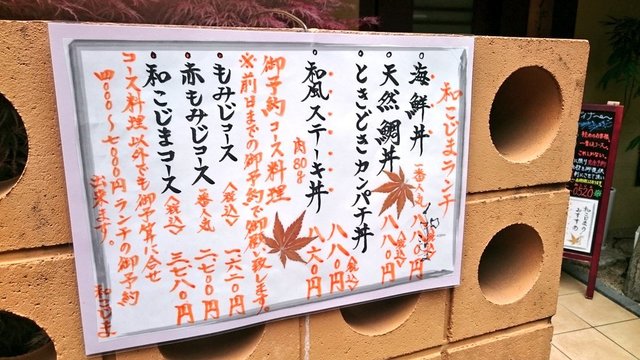 和こじまランチ
・海鮮丼 八八〇円
・天然鯛丼 一番人気 〈税込〉 八八〇円
・ときどきカンパチ丼 〈税込〉 八八〇円
・和風ステーキ丼 肉80g 八六〇円
御予約コース料理
※前日までの御予約で御願い致します。
・もみじコース 〈税込〉 一六二〇円
・赤もみじコース 一番人気 二七〇〇円
・和こじまコース 〈税込〉 三七八〇円
コース料理以外でも御予算に合せ
四〇〇〇〜七〇〇〇円ランチの御予約
出来ます。 和こじま
和こじまの
おすすめ